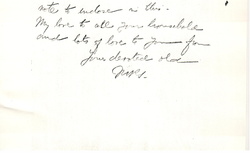 note to enclose in this.
My love to all your household
and lots of love to you from
Your devoted old